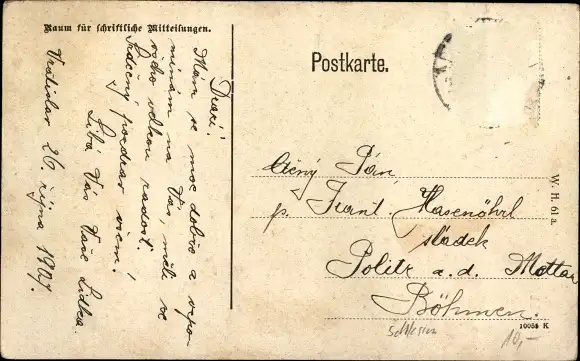 Raum für schriftliche Mitteilungen.
Drazí!
Mám se moc dobře a
na Vás, měli
velkou radost.
Srdečný pozdrav všem!
Líbá Vás Vaše Lidka
Vratislav 26. října 1907.
Postkarte.
Ctěný Pán,
p. Frant. Hasenöhrl
sladek
Politz a. d. Mettau
Böhmen.
W. H. 61 a.
10058 K
Schlesien
10,-